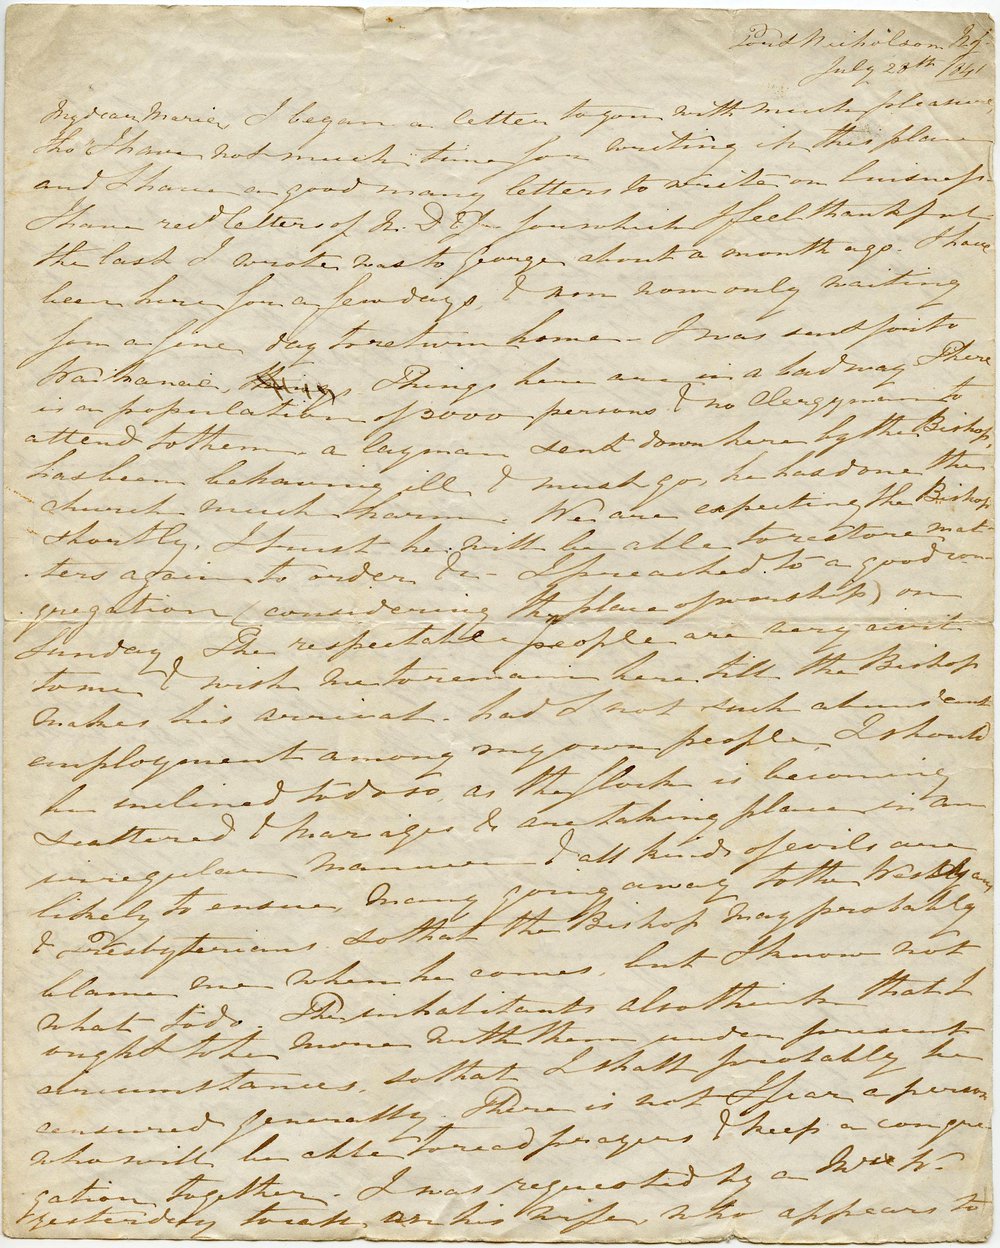 Port Nicholson
July 28th 1841
My dear Marie, I began a letter to you with much pleasure,
tho' I have not much time for writing in this place
and I have a good many letters to write on buisness
I have recd letters of N. D & for which I feel thankful -
the last I wrote was to George about a month ago. I have
been here for a few days, & am now only waiting
for a fine day to return home - I was sent for to
Waikanae, Things here are in a bad way There
is a population of 3000 persons & no Clergyman to
attend to them. a layman sent down here by the Bishop,
has been behaving ill & must go, he has done the
church much harm. We are expecting the Bishop
shortly. I trust he will be able to restore mat-
ters again to order &c - I preached to a good con-
gregation (considering the place of worship) on
Sunday The respectable people are very civil
to me & wish me to remain here till the Bishop
makes his arrival - had I not such abundant
employment among my own people, I should
be inclined to do so, as the flock is becoming
scattered & marriages &c are taking place in an
irregular manner & all kinds of evils are
likely to ensue, many going away to the Weslyans
& Presbyterians. so that the Bishop may probably
blame me when he comes, but I know not
what to do. The inhabitants also think that I
ought to be more with them under present
circumstances, so that I shall probably be
censured generally. There is not I fear a person
who will be able to read prayers & keep a congre-
gation together. I was requested by a Mr W-
yesterday to call on his wife, who appears to